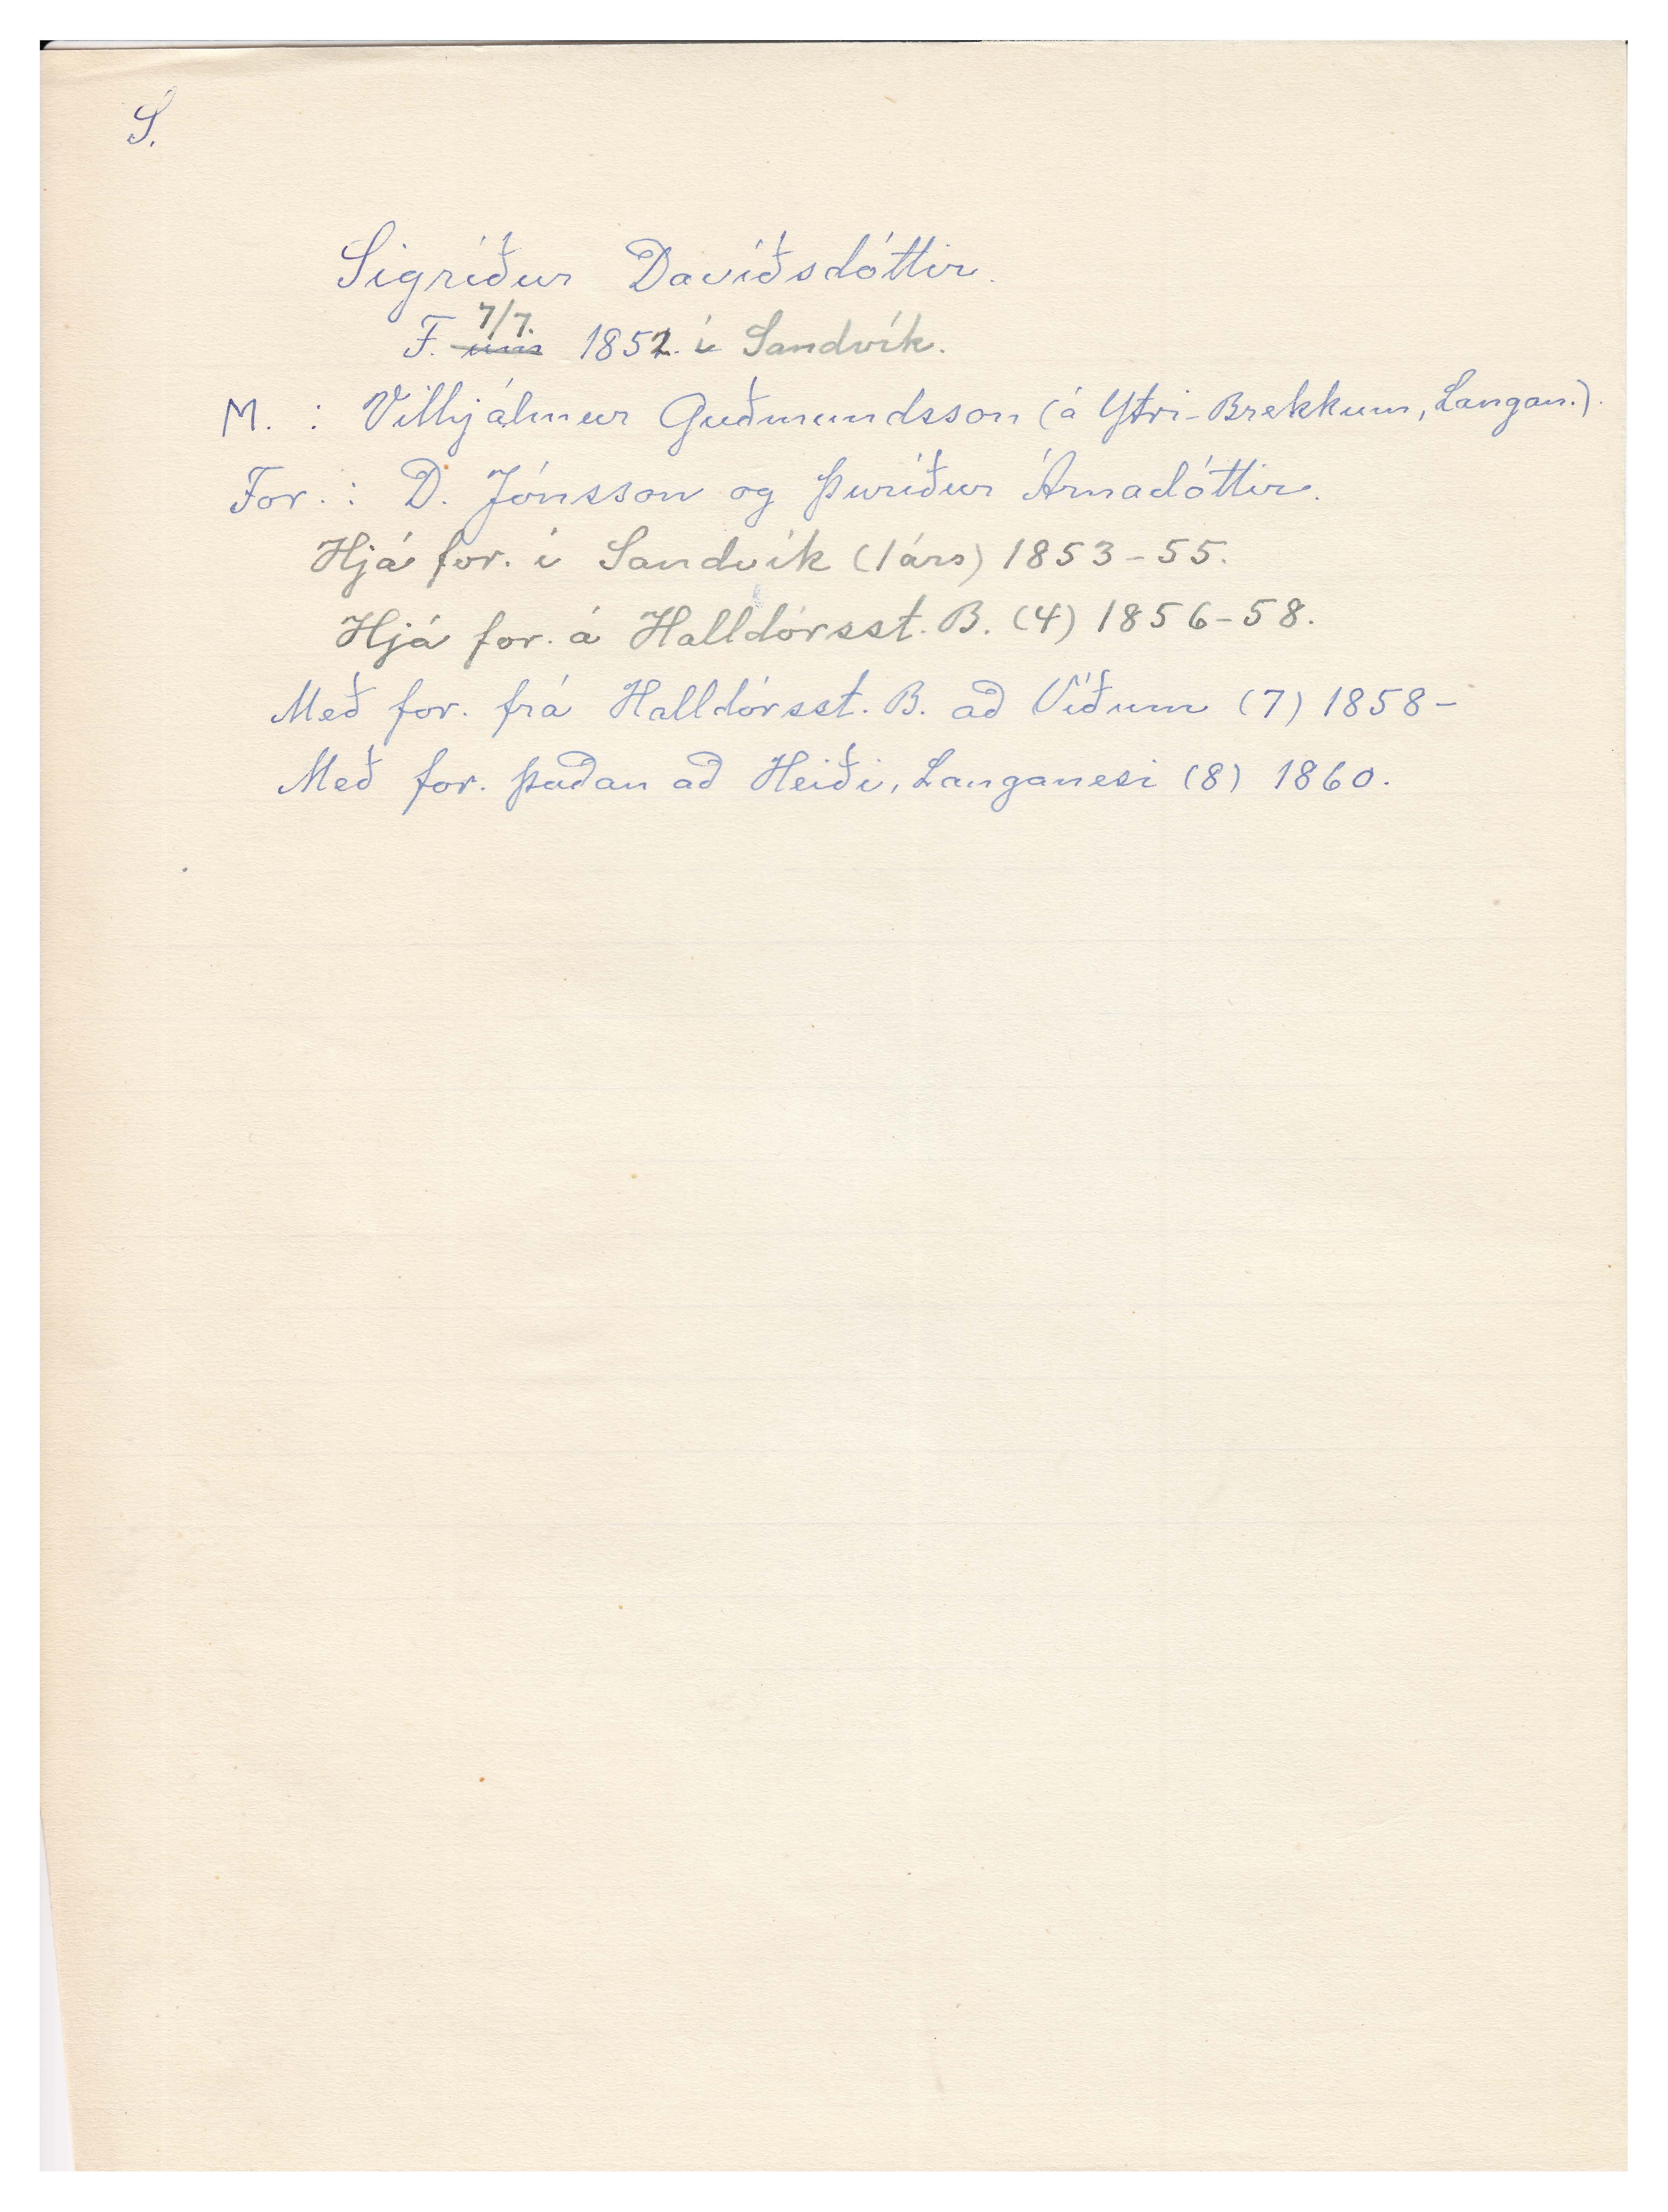 S.
Sigríður Davíðsdóttir.
F. 7/7. 1852. í Sandvík.
M. : Vilhjálmur Guðmundsson (á Ytri-Brekkum, Langan.).
For. : D. Jónsson og Þuríður Árnadóttir.
Hjá for. í Sandvík (1 árs) 1853-55.
Hjá for. á Halldórsst. B. (4) 1856-58.
Með for. frá Halldórsst. B. að Víðum (7) 1858-
Með for. þaðan að Heiði, Langanesi (8) 1860.